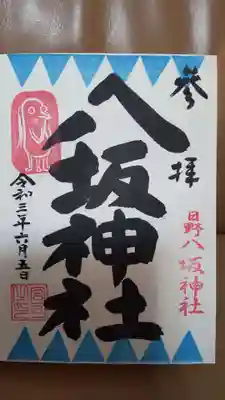 奉拝
八坂神社
日野八坂神社
令和三年六月五日